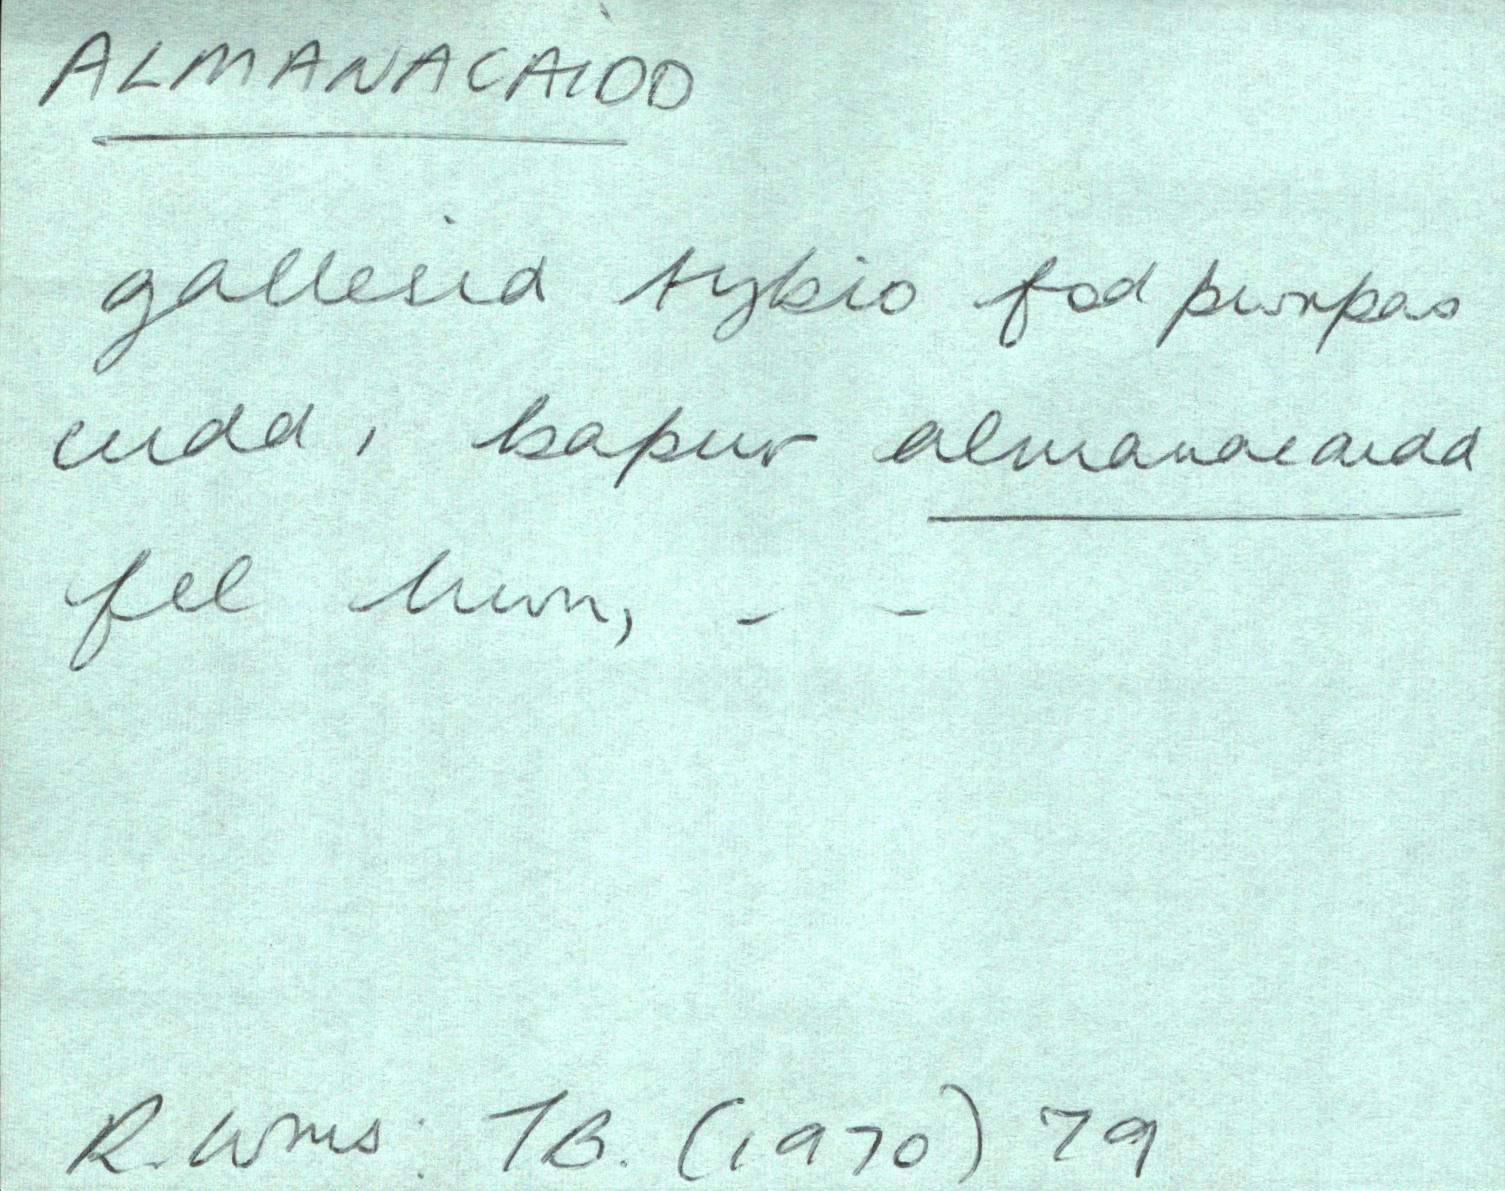 ALMANACAIDD
gellesid tybio fod pwrpas
cudd, i bapur almanacaidd
fel hwn, - -
R. Wms: TB. (1970) 79